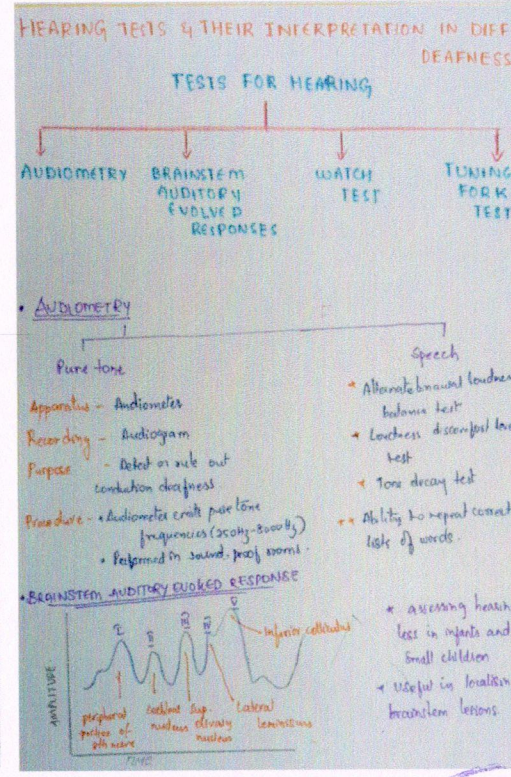 HEARING TESTS & THEIR INTERPRETATION IN DIFF
DEAFNESS
TESTS FOR HEARING
AUDIOMETRY
BRAINSTEM
AUDITORY
EVOLVED
RESPONSES
WATCH
TEST
TUNING
FORK
TEST
• AUDIOMETRY
Pure tone
Apparatus - Audiometer
Recording - Audiogram
Purpose - Detect or rule out
conduction deafness
Procedure - • Audiometer emits pure tone
frequencies (250Hz-8000Hz)
• Performed in sound-proof rooms.
Speech
* Alternate binaural loudness
balance test
* Loudness discomfort
test
* Tone decay test
** Ability to repeat correct
lists of words.
• BRAINSTEM AUDITORY EVOKED RESPONSE
AMPLITUDE
I
II
III
IV
V
Inferior colliculus
peripheral
portion of
8th nerve
Cochlear
nucleus
Sup.
olivary
nucleus
Lateral
lemniscus
TIME
* assessing hearing
loss in infants and
small children
* Useful in localising
brainstem lesions